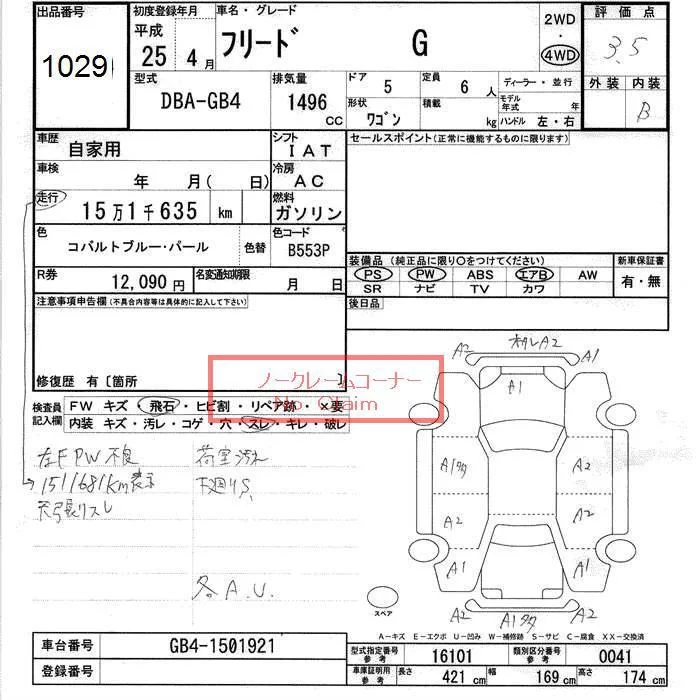 出品番号
1029
初度登録年月
平成
25 4 月
車名・グレード
フリード G
2WD
・
4WD
評価点
3.5
外装 内装
B
型式
DBA-GB4
排気量
1496
CC
ドア 5
定員 6 人
形状 ワゴン
積載 kg
ディーラー・並行
モデル年式 年
ハンドル 左・右
車歴
自家用
シフト
IAT
セールスポイント(正常に機能するものに限ります)
車検
年 月( 日)
冷房
AC
走行
15万1千635 km
燃料
ガソリン
色
コバルトブルー・パール
色替
色コード
B553P
装備品(純正品に限り○をつけてください)
新車保証書
PS PW ABS エアB AW
SR ナビ TV カワ
有・無
R券
12,090円
名変通知期限
月 日
後日品
注意事項申告欄(不具合内容等は具体的に記入して下さい)
修復歴 有〔箇所 〕
ノークレームコーナー
No Claim
検査員記入欄
FW キズ・飛石・ヒビ割・リペア跡・×要
内装 キズ・汚レ・コゲ・穴・スレ・キレ・破レ
左FPW不良
荷室汚れ
151168km表示
下廻りS
天張リスレ
A.U.
A2
A2
A1
A1
A1多
A2
A2
A2
A1
A1
A2
A1多
A2
スペア
A-キズ E-エクボ U-凹み W-補修跡 S-サビ C-腐食 XX-交換済
車台番号
GB4-1501921
型式指定番号
参考
16101
類別区分番号
参考
0041
登録番号
車庫証明用
参考
長さ 421 cm
幅 169 cm
高さ 174 cm